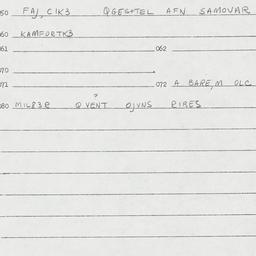 050 FAJ, CIK3 QGES+TEL AFN SAMOVAR
060 KAMFORTK3
061 062
070
071 072 A BARE, M OLC
080 MIL83R ? Q VENT OJVNS RIRES